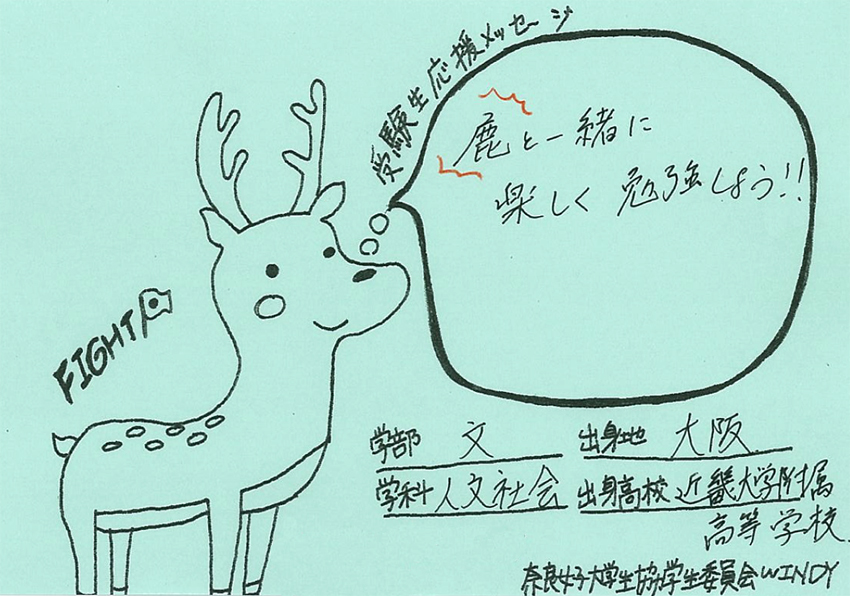 受験生応援メッセージ
鹿と一緒に
楽しく 勉強しよう!!
FIGHT
学部 文 出身地 大阪
学科 人文社会 出身高校 近畿大学附属
高等学校
奈良女子大学生協学生委員会WINDY